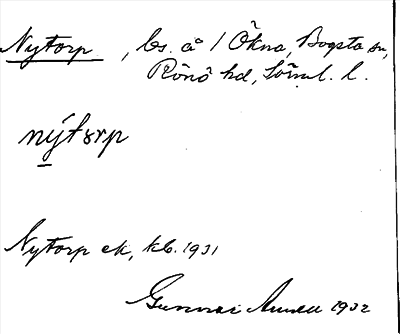 Nytorp, ls. å 1 Ökna, Bogsta sn,
Rönö hd, Sörml. l.
nýtorp
Nytorp ek, kb. 1931
Gunnar 1932